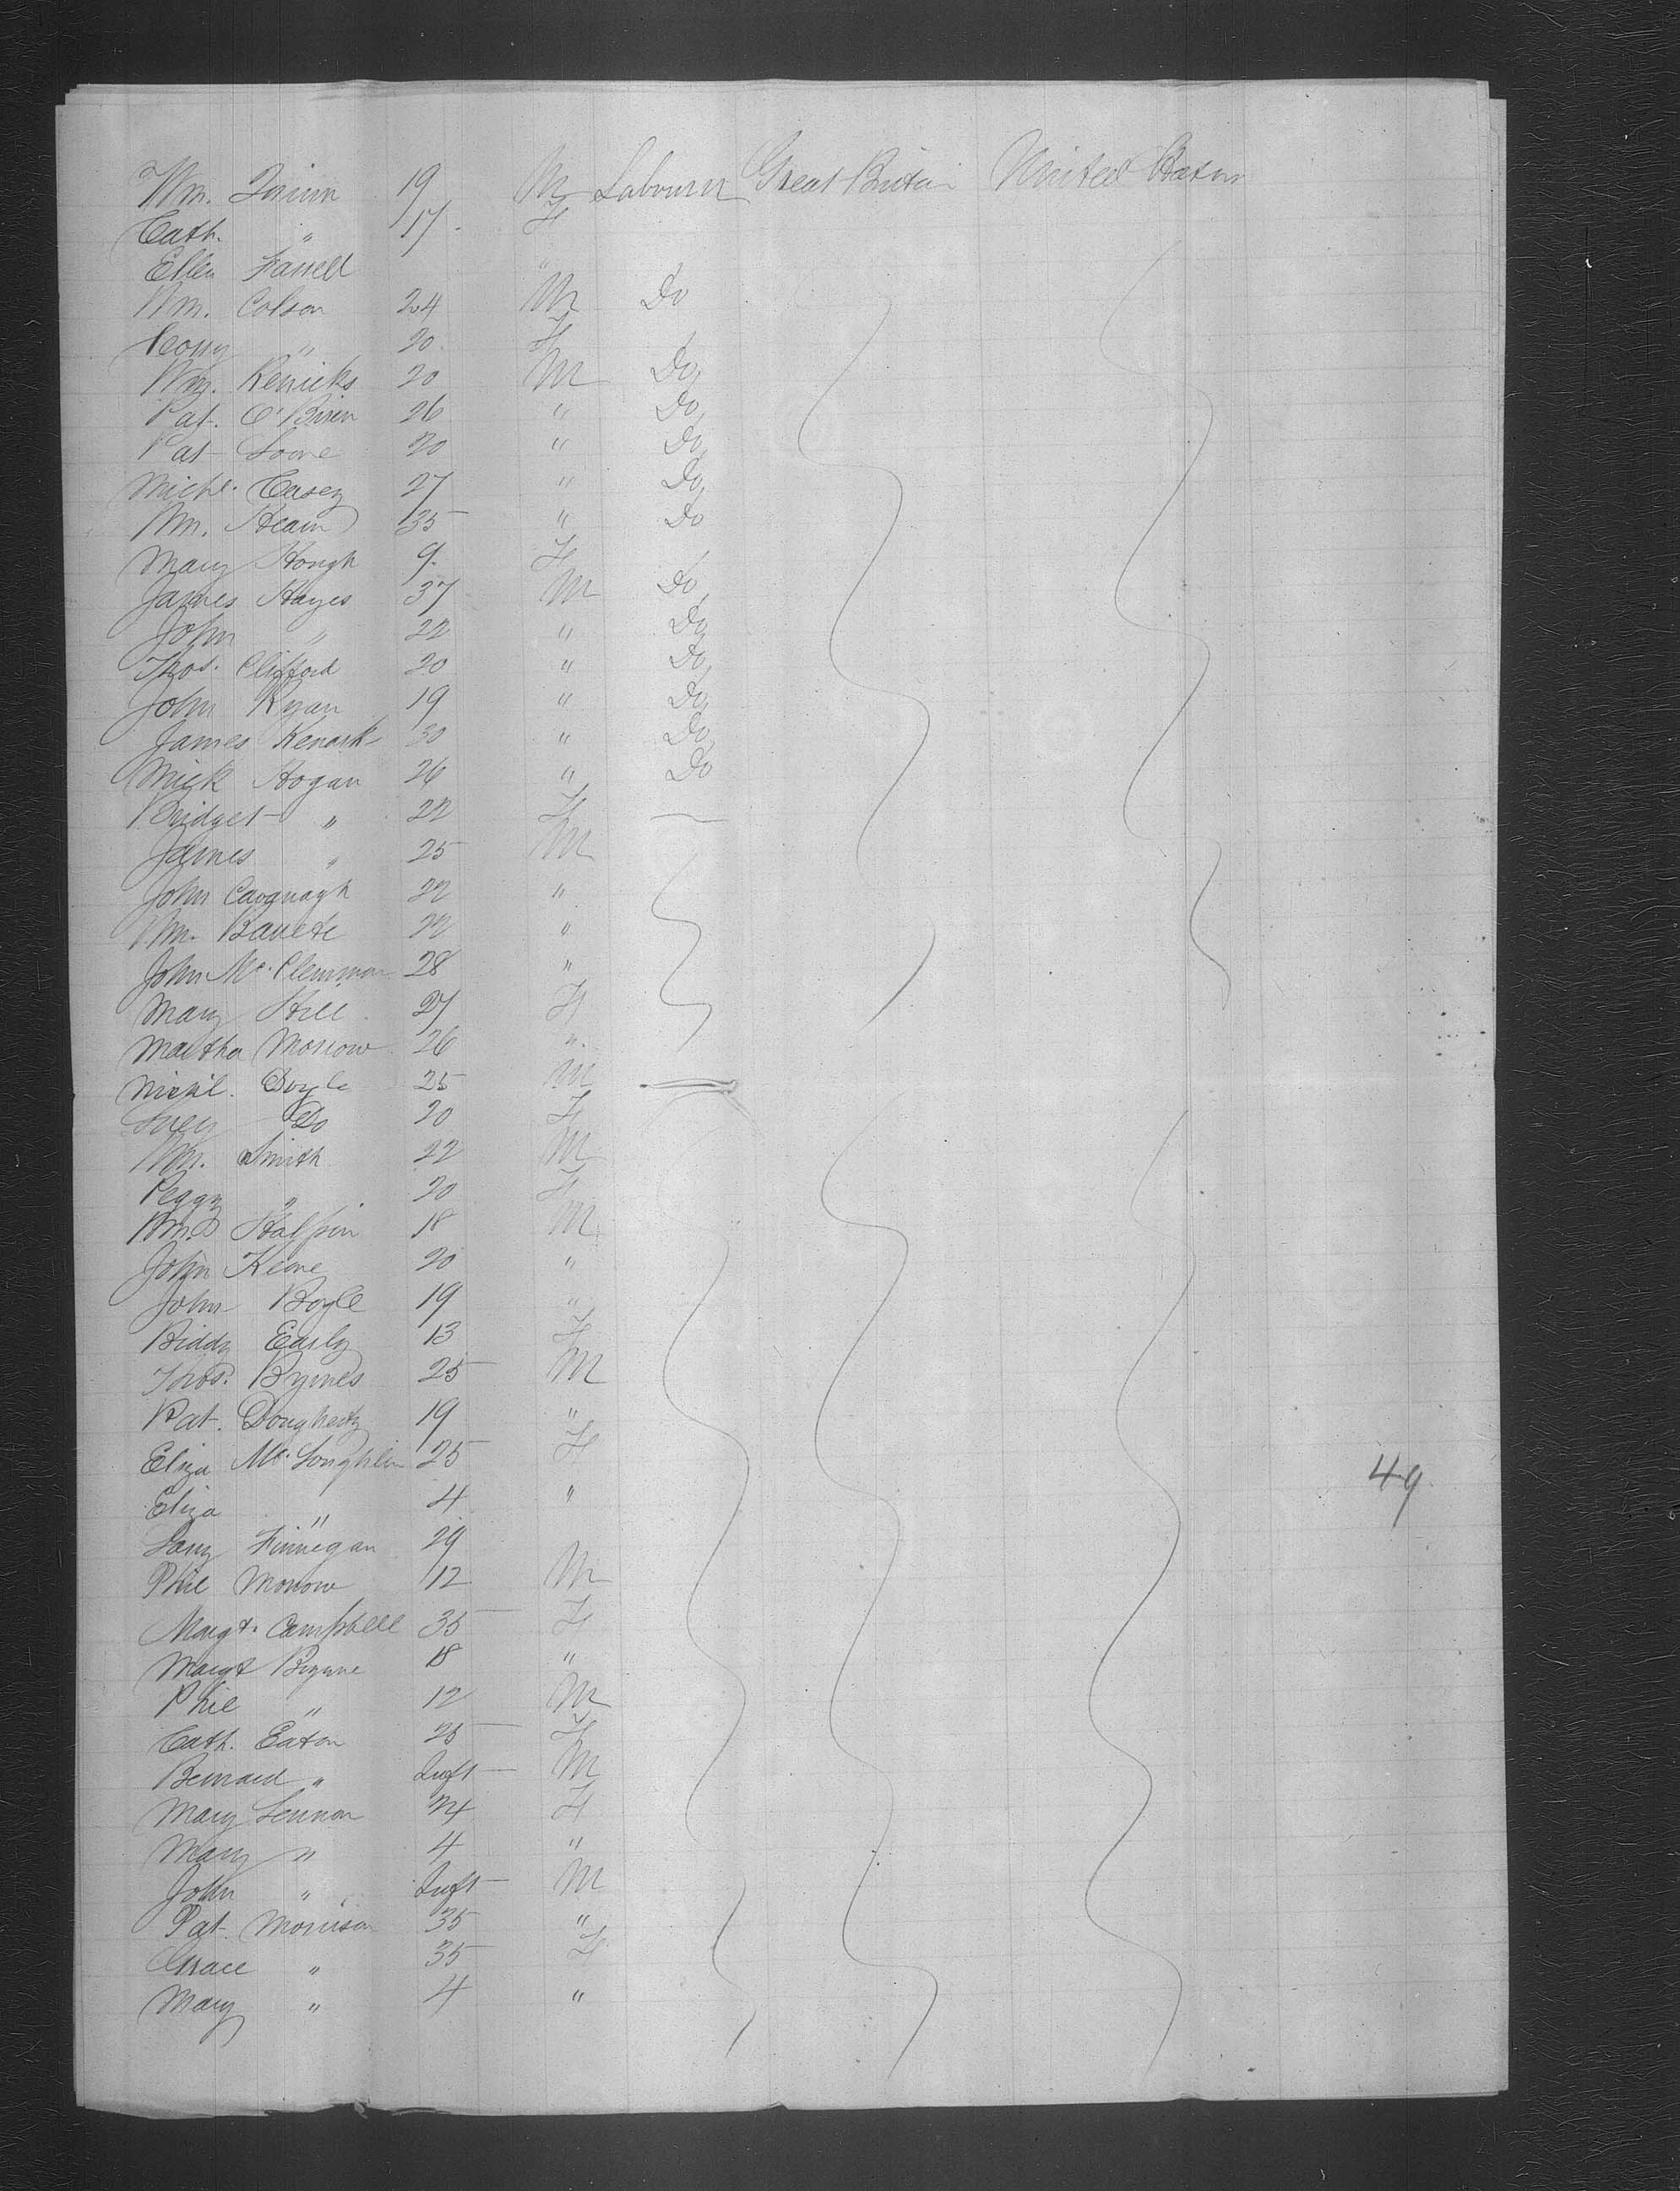 Wm. Quinn 19 M Labourer Great Britain United States
Cath. " 17 F
Ellen Farrell "
Wm. Colson 24 M Do
" 20 F
Wm. Kenicks 20 M Do
Pat. O'Brien 26 " Do
Pat 20 " Do
Michl. Casey 27 " Do
Wm. 35 " Do
Mary Hough 9 F
James Hayes 37 M Do
John " 22 " Do
Thos. Clifford 20 " Do
John Ryan 19 " Do
James 30 " Do
Mick Hogan 26 " Do
Bridget " 22 F
James " 25 M
John Cavgnagh 22 "
Wm. 22 "
John Mc. 28 "
Mary Hill 27 F
Martha Morrow 26 "
Michl. Doyle 25 M
Lucy Do 20 F
Wm. Smith 22 M
Peggy " 20 F
Wm. Halpin 18 M
John Keane 20 "
John Boyle 19 "
Biddy Early 13 F
Thos. Byrnes 25 M
Pat. Dougherty 19 "
Eliza Mc. Loughlin 25 F
Eliza " 4 "
49
Finnegan 29
Phil Morrow 12 M
Margt. Campbell 35 F
Margt Byrne 18 "
Phil " 12 M
Cath. Eaton 25 F
Bernard " Inft M
Mary Lennon 24 F
Mary " 4 "
John " Inft M
Pat. Morrison 35 "
Grace " 35 F
Mary " 4 "